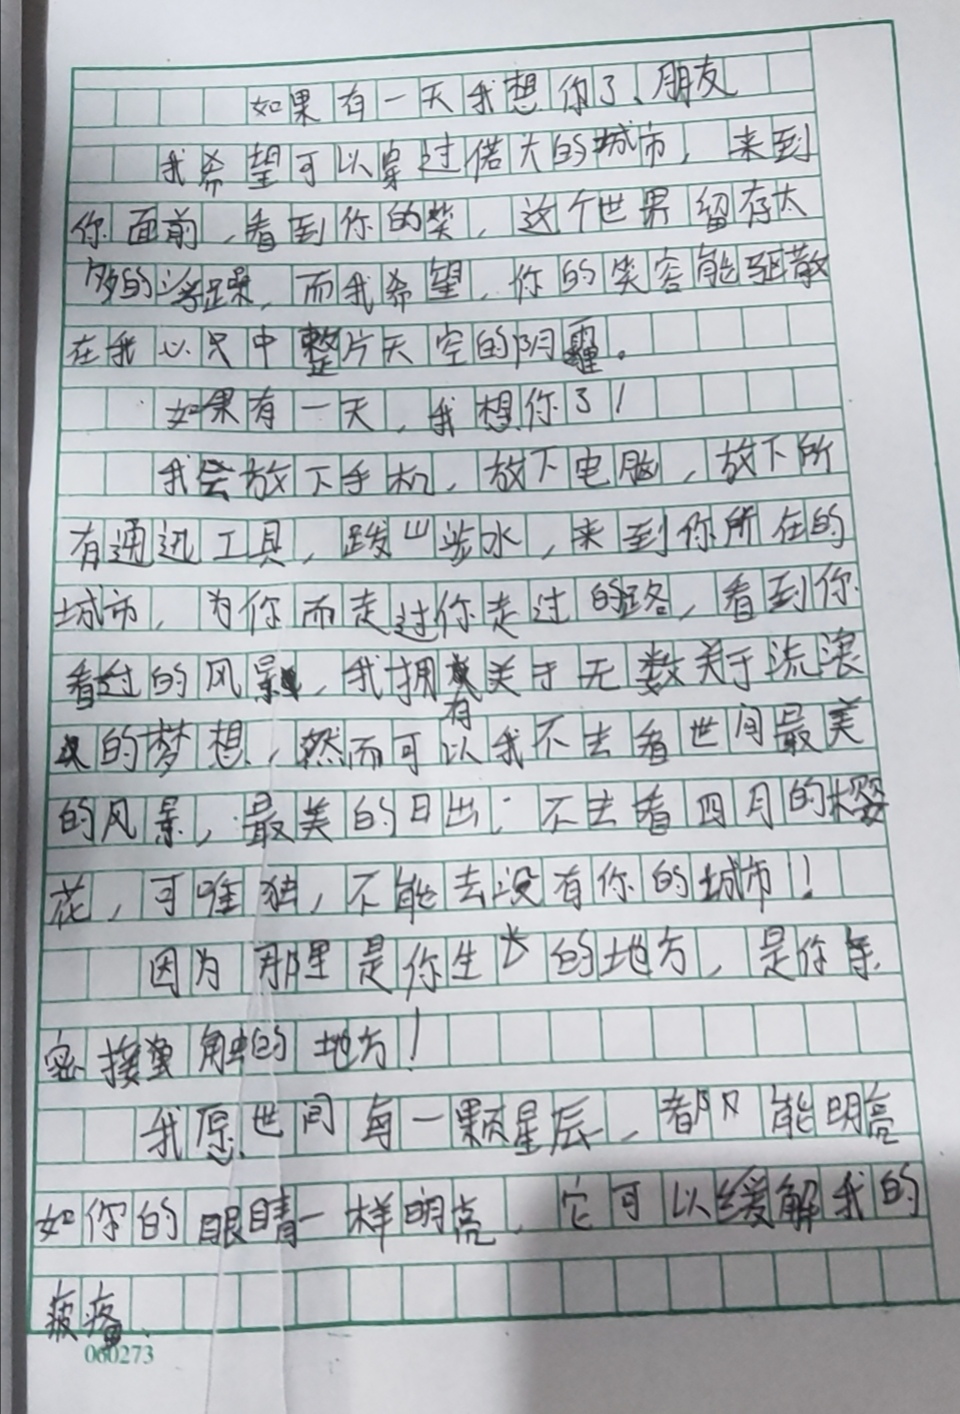 如果有一天我想你了、朋友
我希望可以穿过偌大的城市，来到
你面前，看到你的笑，这个世界留存太
多的浮躁，而我希望，你的笑容能驱散
在我心只中整片天空的阴霾。
如果有一天，我想你了！
我会放下手机，放下电脑，放下所
有通迅工具，跋山涉水，来到你所在的
城市，为你而走过你走过的路，看到你
看过的风景，我拥有关于无数关于流浪
的梦想，然而可以我不去看世间最美
的风景，最美的日出；不去看四月的樱
花，可唯独，不能去没有你的城市！
因为那里是你生长的地方，是你亲
密接触的地方！
我愿世间每一颗星辰，都能明亮
如你的眼睛一样明亮，它可以缓解我的
疲疼、
060273